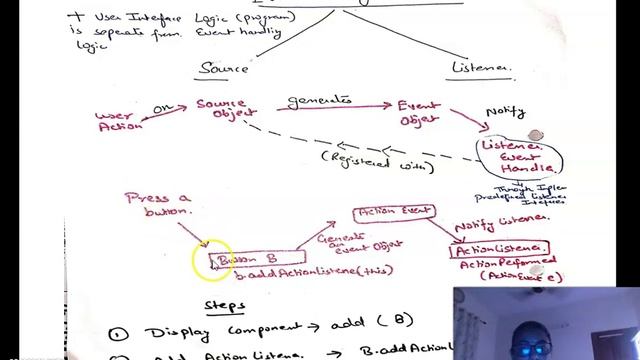 + User Interface Logic (program)
is seperate from Event handling
logic
Source
Listener.
User
Action
on
Source
Object
generates
Event
Object
Notify
Listener
Event
Handle.
(Registered with)
Through Implen
Predefined Listener
Interfaces
Press a
button.
Button B
b.addActionListene(this)
Generates
an
event object
Action Event
Notify Listener.
ActionListener.
ActionPerformed
(ActionEvent e)
Steps
① Display component → add (B)
Add ActionListene. → B.addActionL